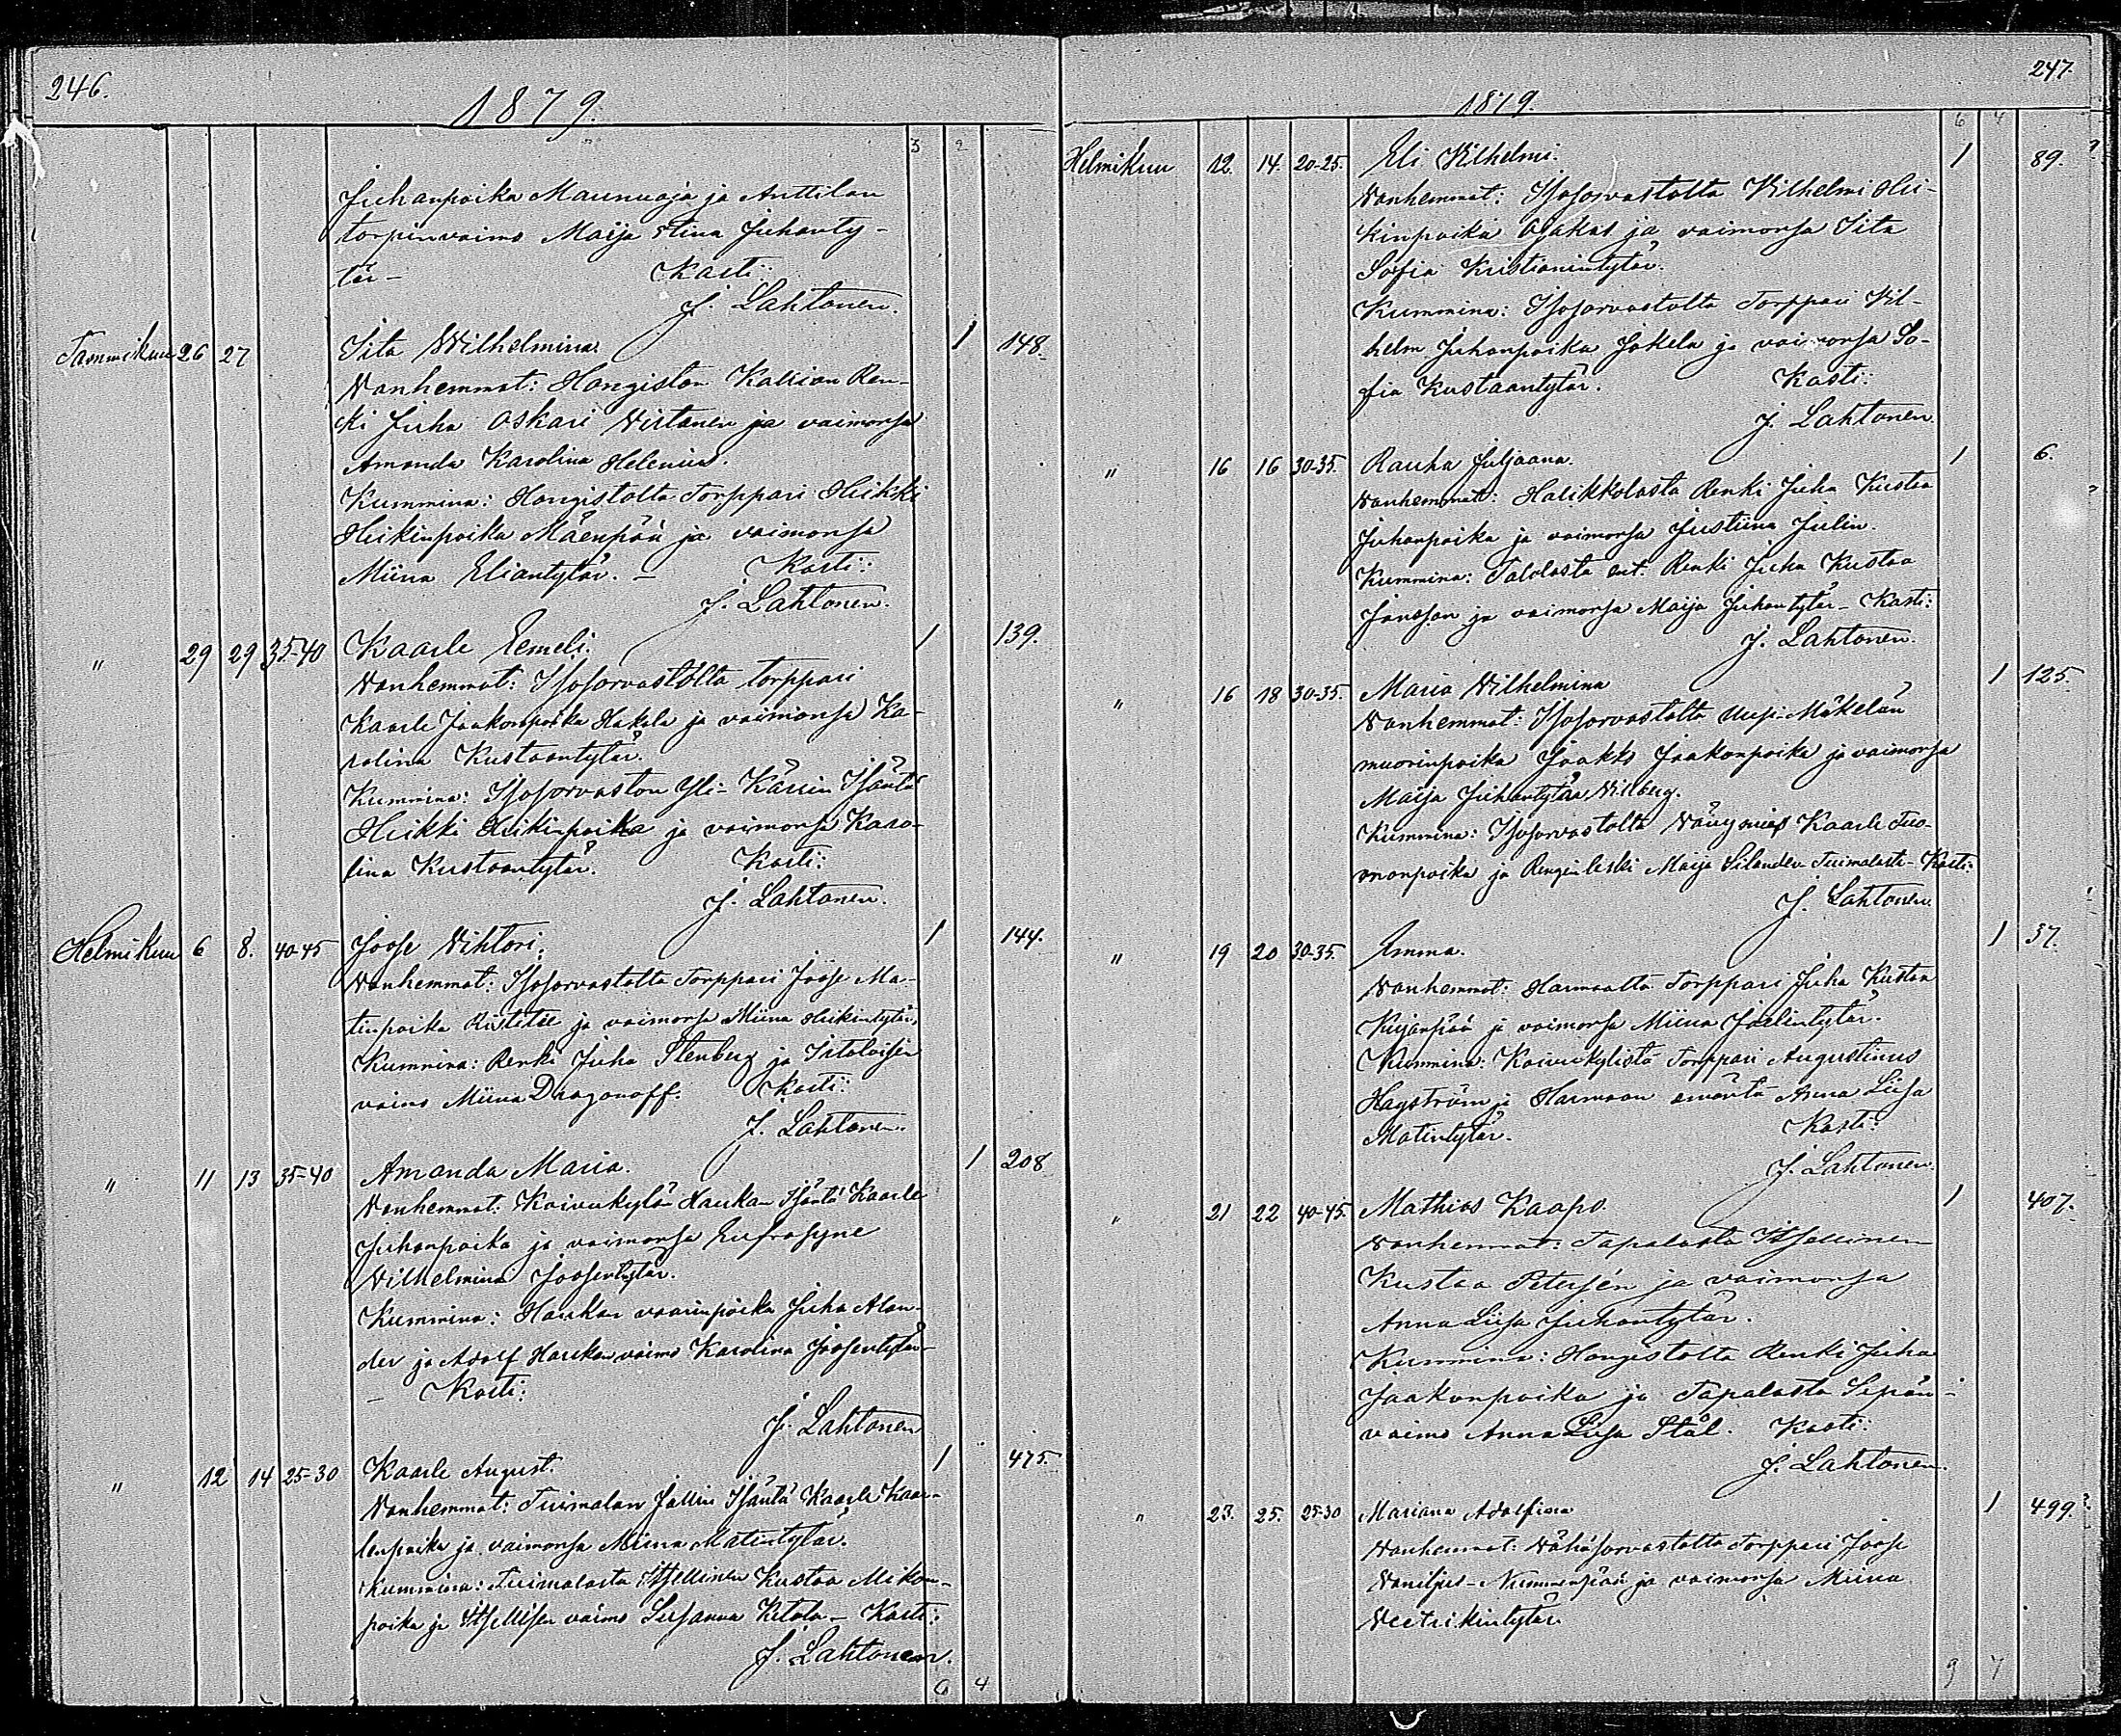 246.
1879.
3 2
Juhanpoika Maunuaja ja Anttilan
torpinvaimo Maija Stina Juhanty-
tär - Kasti:
J. Lahtonen.
Tammikuu 26 27 Iita Wilhelmina. 1 148.
Vanhemmat: Hongiston Kallion Ren-
ki Juha Oskari Virtanen ja vaimonsa
Amanda Karolina Helenius.
Kummina: Hongistolta Torppari Heikki
Heikinpoika Mäenpää ja vaimonsa
Miina Eliantytär. - Kasti:
J. Lahtonen.
" 29 29 35-40 Kaarle Eemeli. 1 139.
Vanhemmat: Isosorvastolta torppari
Kaarle Jaakonpoika Hakala ja vaimonsa Ka-
rolina Kustaantytär.
Kummina: Isosorvaston Yli- Isäntä
Heikki Heikinpoika ja vaimonsa Karo-
lina Kustaantytär. Kasti:
J. Lahtonen.
Helmikuu 6 8. 40-45 Joose Vihtori. 1 144.
Vanhemmat: Isosorvastolta Torppari Joose Ma-
tinpoika ja vaimonsa Miina Heikintytär,
Kummina: Renki Juha Stenberg ja Itsellisen
vaimo Miina Dragonoff. Kasti:
J. Lahtonen.
" 11 13 35-40 Amanda Maria. 1 208
Vanhemmat: Koivukylän Haukan Isäntä Kaarle
Juhanpoika ja vaimonsa Eufrosyne
Vilhelmina Joosentytär.
Kummina: Haukan vaarinpoika Juha Alan-
der ja Adolf Haukan vaimo Karolina Joosentytär-
- Kasti:
J. Lahtonen
" 12 14 25-30 Kaarle August. 1 475.
Vanhemmat: Tuimalan Jallin Isäntä Kaarle Kaar-
lenpoika ja vaimonsa Miina Matintytär.
Kummina: Tuimalasta Itsellinen Kustaa Mikon-
poika ja Itsellisen vaimo Susanna Ketola - Kasti:
J. Lahtonen.
6 4
247.
1879.
6 4
Helmikuu 12. 14. 20-25. Eli Vilhelmi. 1 89.
Vanhemmat: Isosorvastolta Vilhelmi Hei-
kinpoika Ojakas ja vaimonsa Iita
Sofia Kristianintytär.
Kummina: Isosorvastolta Torppari Vil-
helm Juhanpoika Jokela ja vaimonsa So-
fia Kustaantytär. Kasti:
J. Lahtonen.
" 16 16 30-35. Rauha Juljaana. 1 6.
Vanhemmat: Halikkolasta Renki Juha Kustaa
Juhanpoika ja vaimonsa Justiina Julin.
Kummina: Talolasta ent. Renki Juha Kustaa
Jansson ja vaimonsa Maija Juhantytär - Kasti:
J. Lahtonen.
" 16 18 30-35. Maria Vilhelmina 1 125.
Vanhemmat: Isosorvastolta Uusi-Mäkelän
muorinpoika Jaakko Jaakonpoika ja vaimonsa
Maija Juhantytär Vilberg.
Kummina: Isosorvastolta Kaarle Tuo-
monpoika ja Renginleski Maija Silander Tuimalasta - Kasti:
J. Lahtonen
" 19 20 30-35. Emma. 1 37.
Vanhemmat: Harmaalta Torppari Juha Kustaa
Kujanpää ja vaimonsa Miina Joelintytär.
Kummina: Koivukylästä Torppari Augustinus
Hagström ja Harmaan emäntä Anna Liisa
Matintytär. Kasti:
J. Lahtonen.
" 21 22 40-45. Mathias Kaapo. 1 407.
Vanhemmat: Tapalasta Itsellinen
Kustaa Petersén ja vaimonsa
Anna Liisa Juhantytär.
Kummina: Hongistolta Renki Juha
Jaakonpoika ja Tapalasta Sepän-
vaimo Anna Liisa Stål. Kasti:
J. Lahtonen.
" 23. 25. 25-30 Mariana Adolfina 1 499.
Vanhemmat: Vähäsorvastolta Torppari Joose
Nummenpää ja vaimonsa Miina
Veetrikintytär
9 7